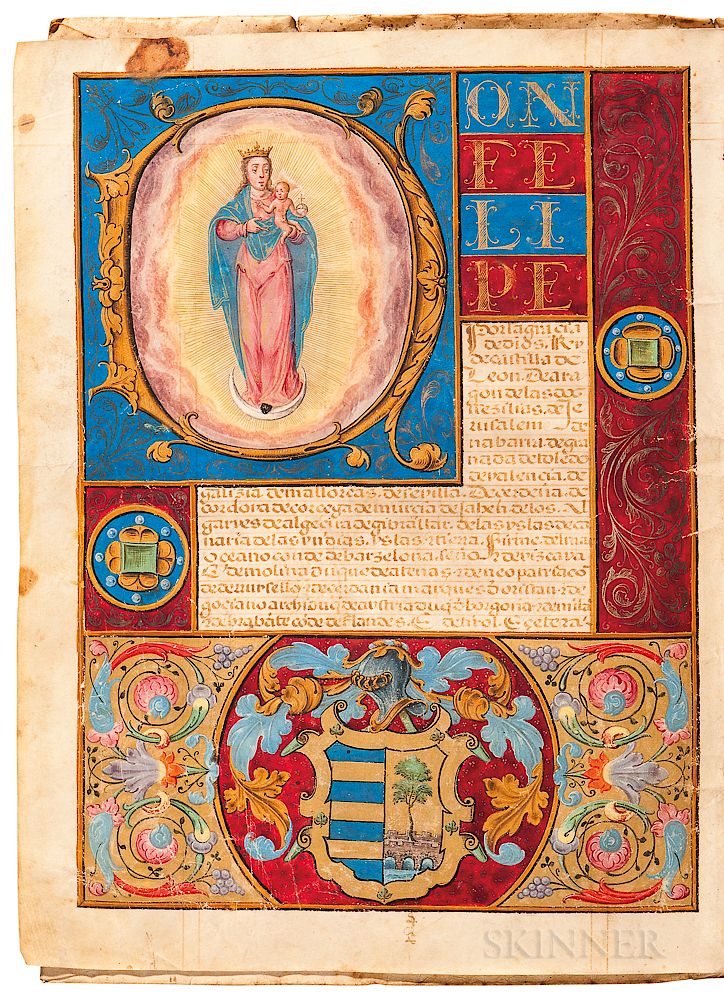 DON
FE
LI
PE
por la gracia
de dios. Rey
de castilla de
Leon. De ara
gon de las do
s sezilias. de Je
rusalem de
nabarra. de gra
nada de toledo
de valencia. de
galizia. de mallorcas. de sevilla. De cerdeña. de
cordova de corcega de murcia de Jahen de los. Al
garves de algecira de gibraltar. de las yslas de ca
naria. de las yndias. yslas. tierra. firme. del mar
oceano conde de barzelona. señor de vizcaya
E de molina duque de atenas. de neo patria co
de de ruysellon de cerdania marques de oristan. de
gociano archiduq de austria duq d borgoña. de mila
de brabāte cōde de flandes. E. de tirol. E çetera.
SKINNER